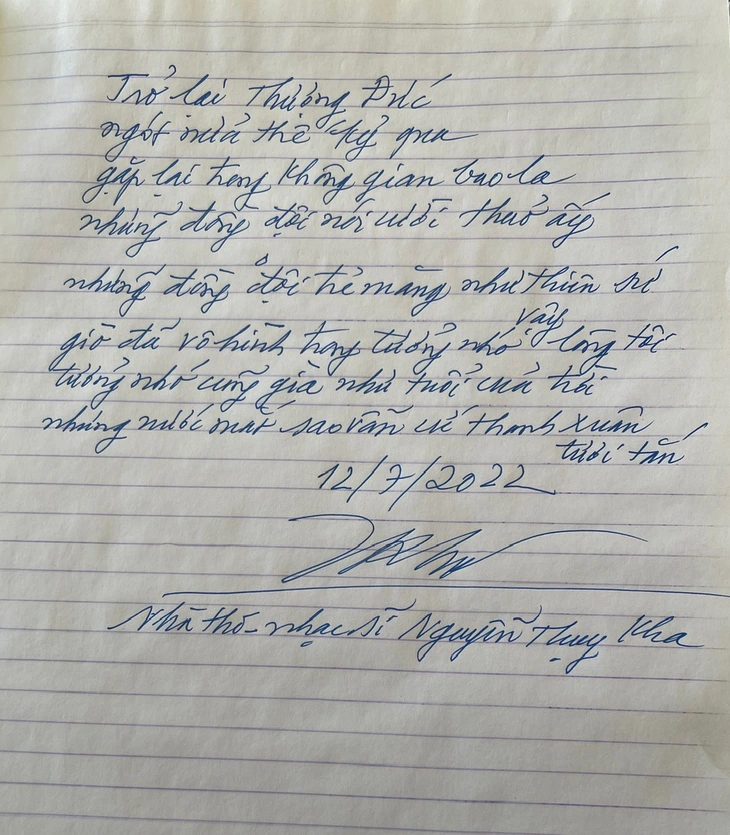 Trở lại Thượng Đức
ngót nửa thế kỷ qua
gặp lại trong không gian bao la
những đồng đội nói cười thuở ấy
những đồng đội trẻ măng như thiên sứ
giờ đã vô hình trong tưởng nhớ vây lòng tôi
tưởng nhớ cũng già như tuổi của tôi
nhưng nước mắt sao vẫn cứ thanh xuân
tươi tắn
12/7/2022
Nhà thơ - nhạc sĩ Nguyễn Thụy Kha